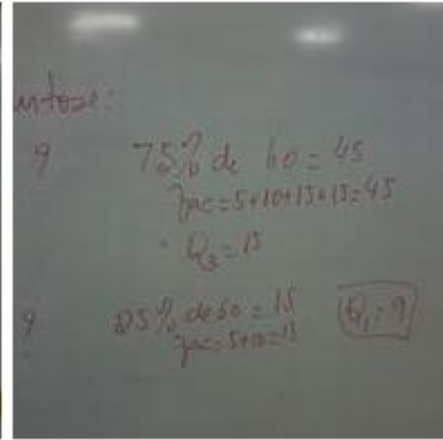 9 75% de 60 = 45
fac = 5+10+15+15 = 45
Q₃ = 15
9 25% de 60 = 15 Q₁ = 9
fac = 5+10 = 15